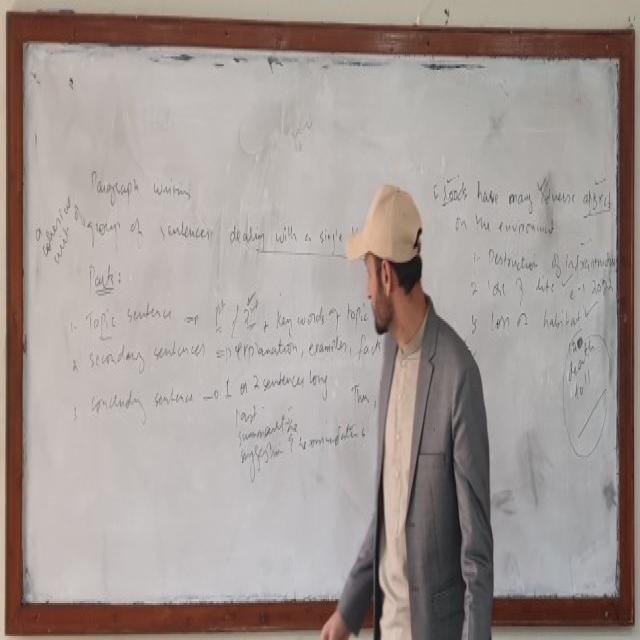 Paragraph writing
a group of sentences dealing with a single
Parts:
1- Topic sentence => 1st / 2nd + key words of topic
2 secondary sentences => explanation, examples, fact
3 concluding sentence 1 or 2 sentences long
Thus,
last
summarize
suggestion &
Floods have many adverse affect
on the environment
1- Destruction of infrastructure
2 loss of life
3 loss of habitat
death
toll